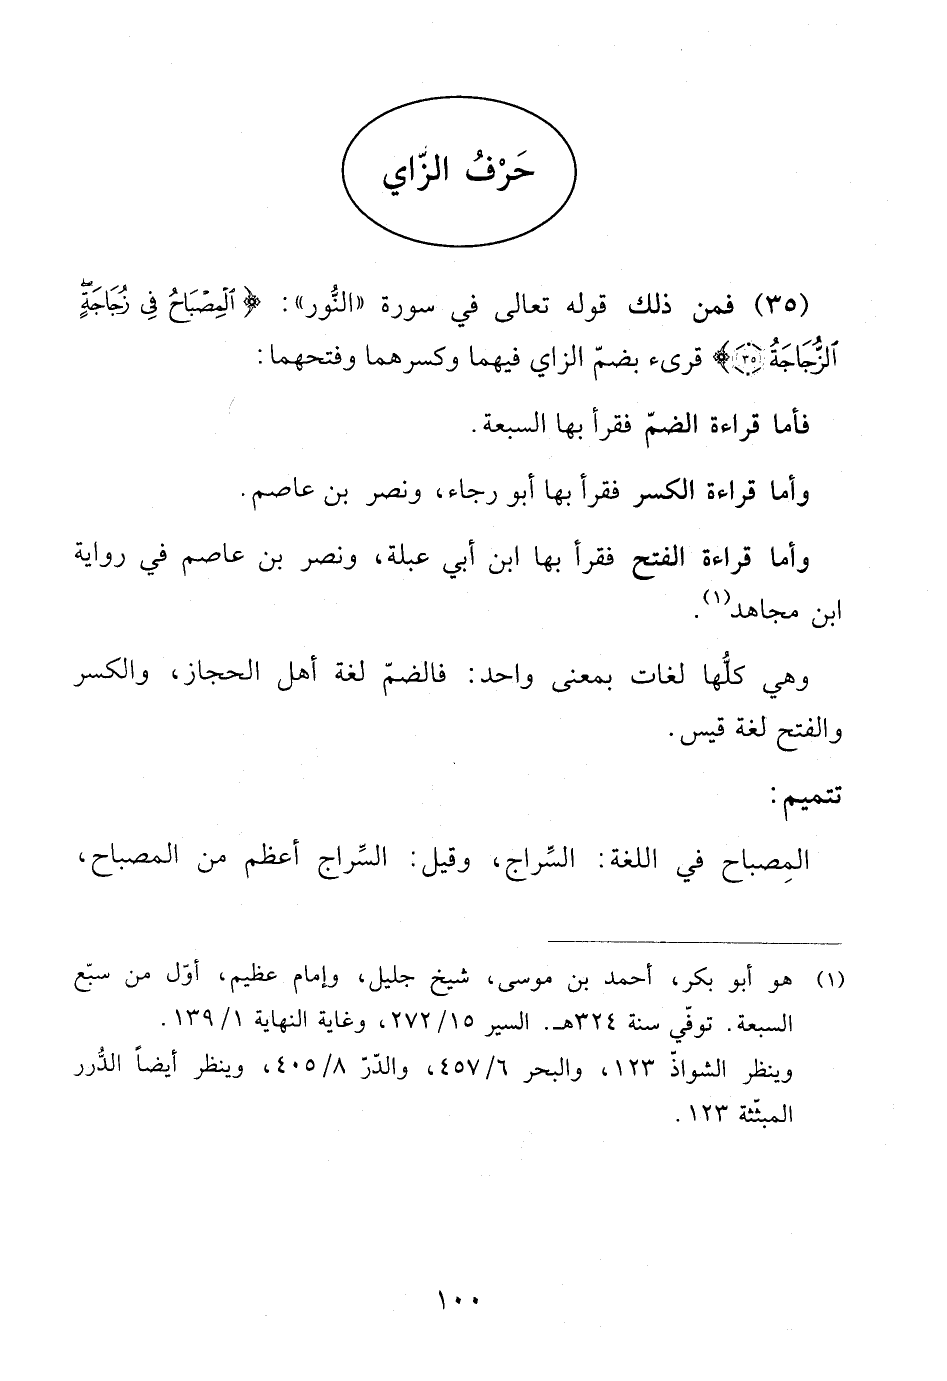 حَرْفُ الزّاي
(٣٥) فمن ذلك قوله تعالى في سورة «النُّور»: ﴿ٱلْمِصْبَاحُ فِى زُجَاجَةٍۖ
ٱلزُّجَاجَةُ ﴿٣٥﴾﴾ قرىء بضمّ الزاي فيهما وكسرهما وفتحهما:
فأما قراءة الضمّ فقرأ بها السبعة.
وأما قراءة الكسر فقرأ بها أبو رجاء، ونصر بن عاصم.
وأما قراءة الفتح فقرأ بها ابن أبي عبلة، ونصر بن عاصم في رواية
ابن مجاهد(١).
وهي كلُّها لغات بمعنى واحد: فالضمّ لغة أهل الحجاز، والكسر
والفتح لغة قيس.
تتميم:
المِصباح في اللغة: السِّراج، وقيل: السِّراج أعظم من المصباح،
(١) هو أبو بكر، أحمد بن موسى، شيخ جليل، وإمام عظيم، أوّل من سبّع
السبعة. توفّي سنة ٣٢٤هـ. السير ٢٧٢/١٥، وغاية النهاية ١٣٩/١.
وينظر الشواذّ ١٢٣، والبحر ٤٥٧/٦، والدّرّ ٤٠٥/٨، وينظر أيضاً الدُّرر
المبثّثة ١٢٣.
١٠٠